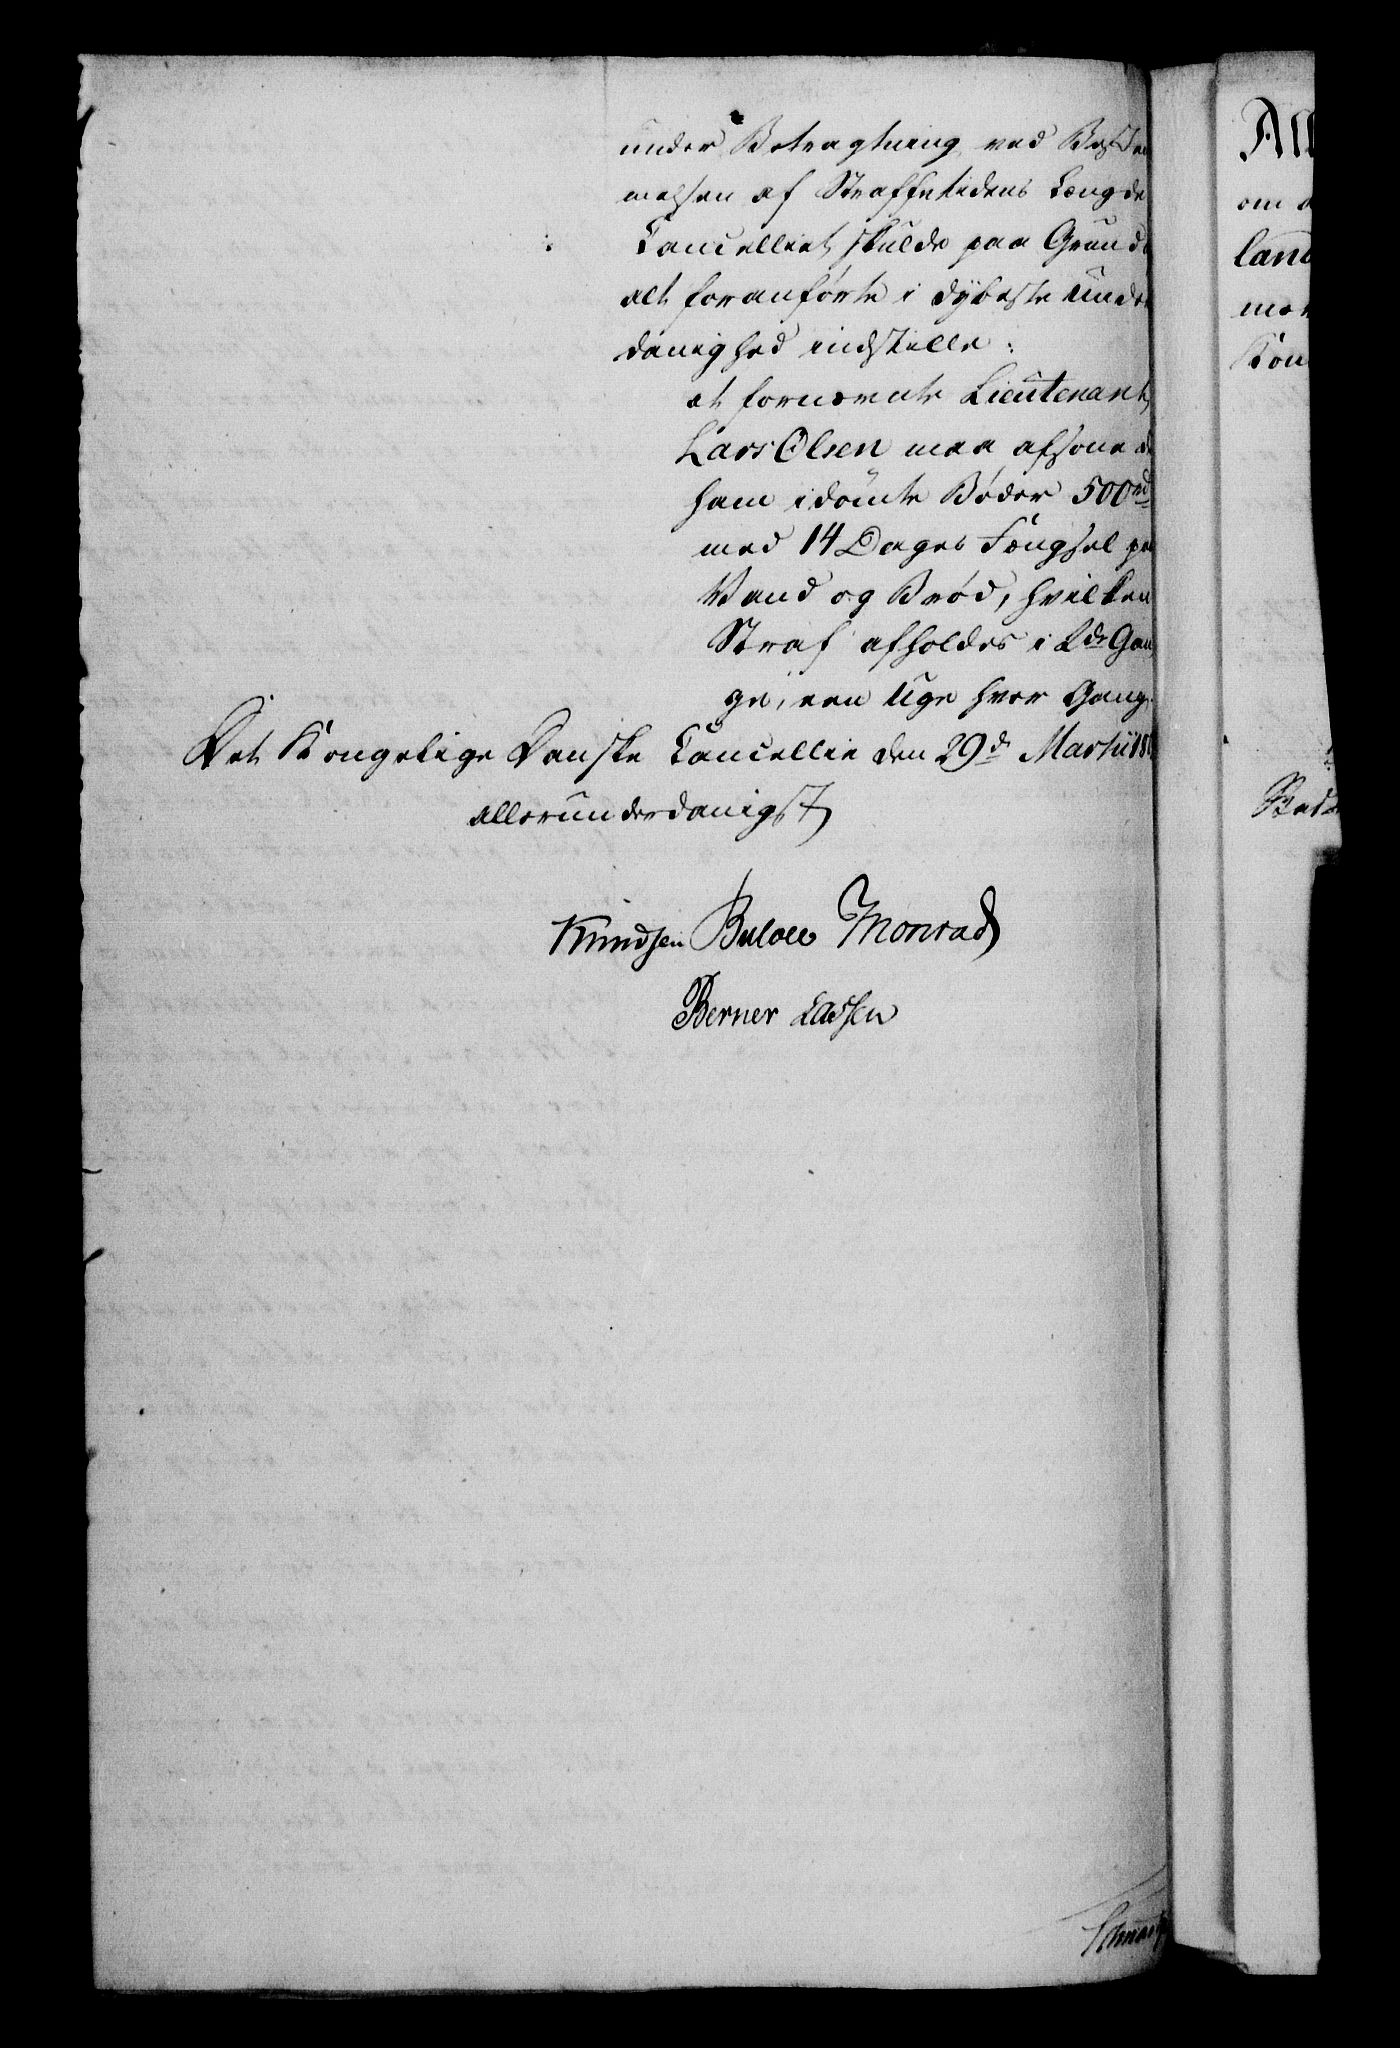 under Betragtning ved Bestem
melsen af Straffetidens Længde
Cancelliet skulde paa Grund
alt foranførte i dybeste Under
danighed indstille:
at fornævnte Lieutenant
Lars Olsen maa afsone de
ham idømte Bøder 500 rd
med 14 Dages Fængsel paa
Vand og Brød, hvilken
Straf afholdes i 2de Gan
ge, een Uge hver Gang.
Det Kongelige Danske Cancellie den 29d Martii 18
allerunderdanigst
Knudsen Bülow Monrad
Berner Lassen
All
om
land
mer
Kon